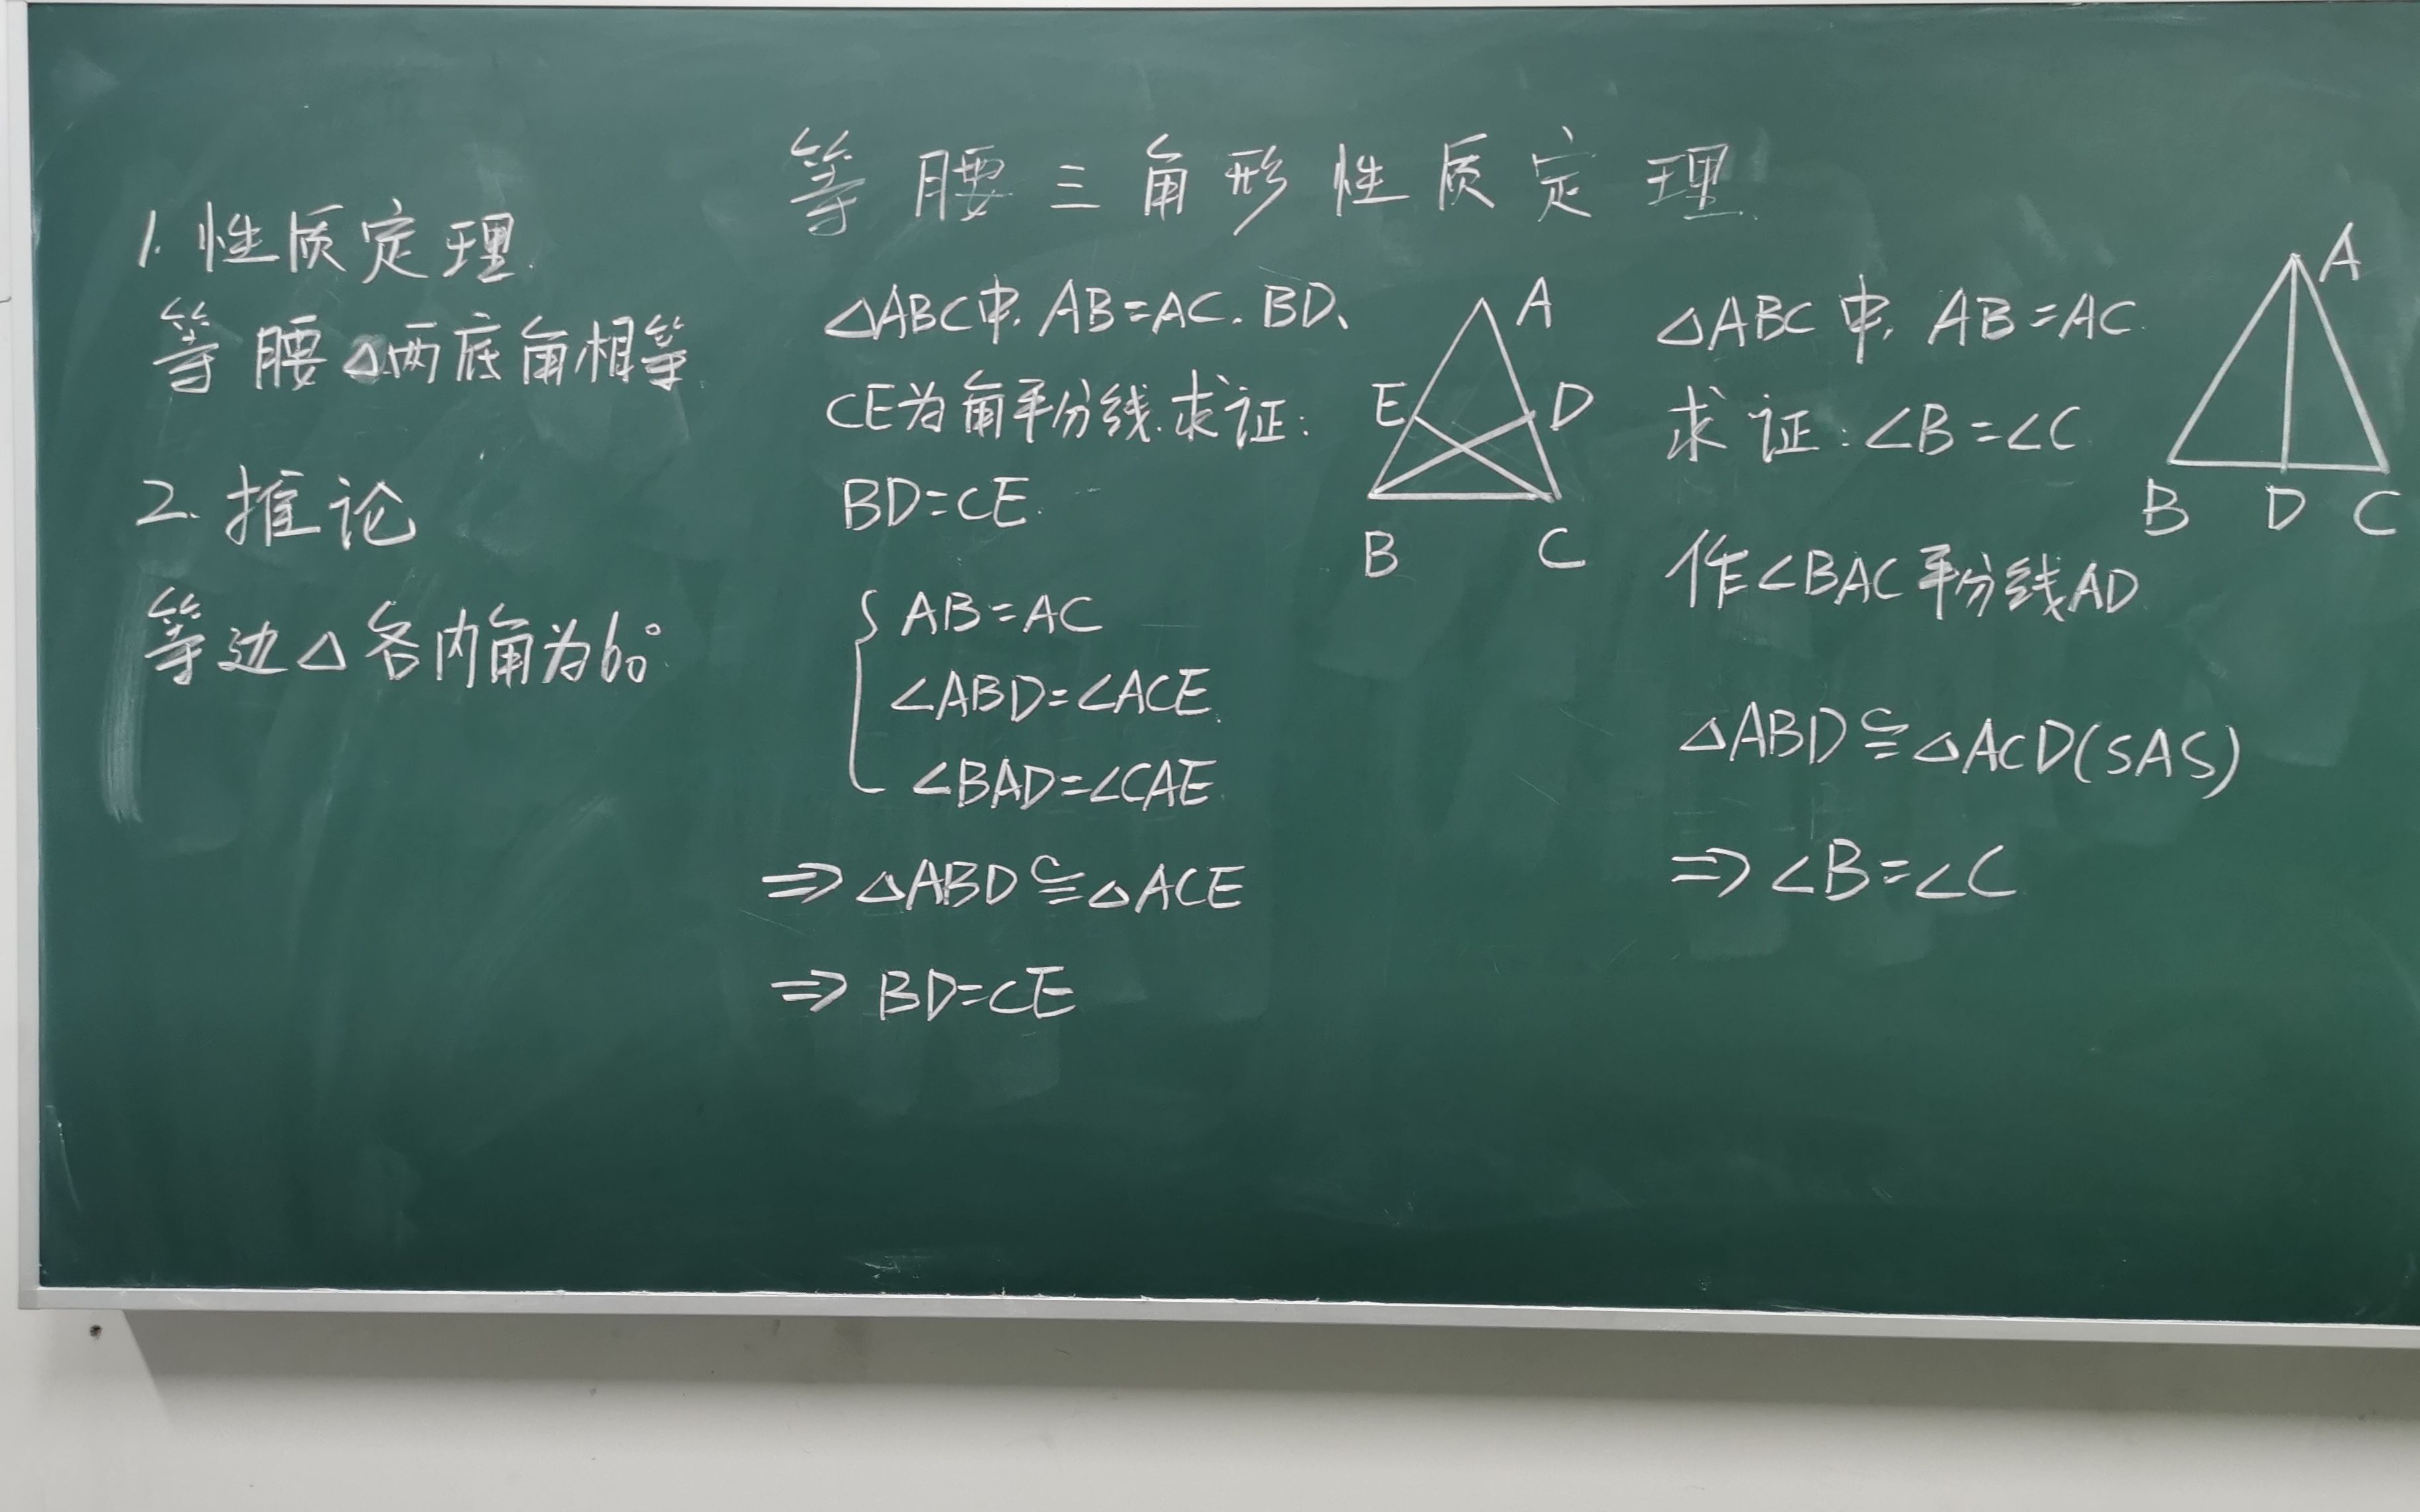 等腰三角形性质定理
1.性质定理
等腰△两底角相等
2.推论
等边△各内角为60°
△ABC中,AB=AC.BD、
CE为角平分线.求证:
BD=CE.
AB=AC
∠ABD=∠ACE
∠BAD=∠CAE
⇒△ABD≌△ACE
⇒BD=CE
A
E D
B C
△ABC中,AB=AC.
求证:∠B=∠C
作∠BAC平分线AD
△ABD≌△ACD(SAS)
⇒∠B=∠C
A
B D C